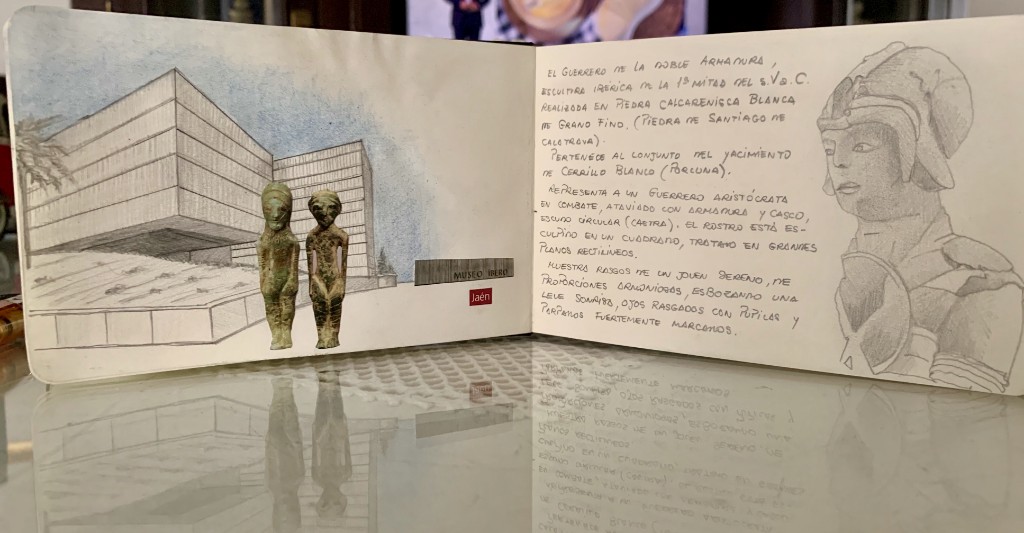 MUSEO IBERO
Jaén
EL GUERRERO DE LA DOBLE ARMADURA,
ESCULTURA IBERICA DE LA 1ª MITAD DEL S.V a.C.
REALIZADA EN PIEDRA CALCARENISCA BLANCA
DE GRANO FINO. (PIEDRA DE SANTIAGO DE
CALATRAVA).
PERTENECE AL CONJUNTO DEL YACIMIENTO
DE CERRILLO BLANCO (PORCUNA).
REPRESENTA A UN GUERRERO ARISTÓCRATA
EN COMBATE, ATAVIADO CON ARMADURA Y CASCO,
ESCUDO CIRCULAR (CAETRA). EL ROSTRO ESTÁ ES-
CULPIDO EN UN CUADRADO, TRATADO EN GRANDES
PLANOS RECTILÍNEOS.
MUESTRA RASGOS DE UN JOVEN SERENO, DE
PROPORCIONES ARMONIOSAS, ESBOZANDO UNA
LEVE SONRISA, OJOS RASGADOS CON PUPILAS Y
PARPADOS FUERTEMENTE MARCADOS.